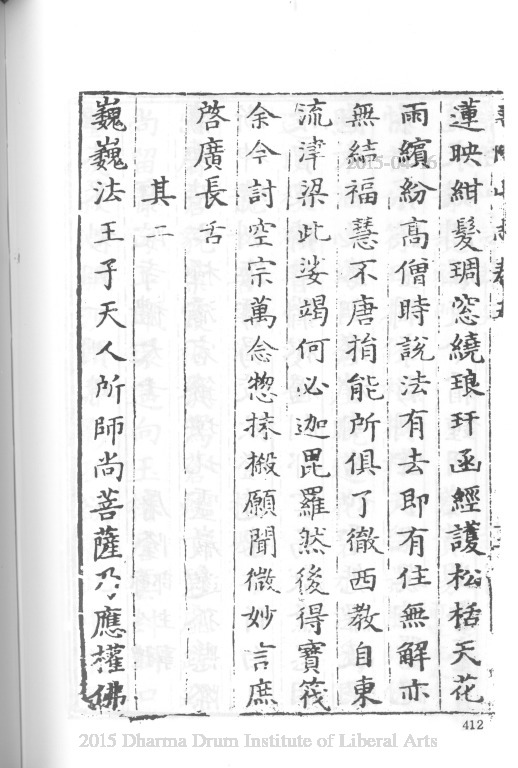 蓮映紺髮琱窓繞琅玕函經護松栝天花
雨繽紛高僧時說法有去即有住無解亦
無結福慧不唐捐能所俱了徹西教自東
流津梁此娑竭何必迦毘羅然後得寶筏
余今討空宗萬念惣捺搬願聞微妙言庶
啓廣長舌
其二
巍巍法王子天人所師尚菩薩乃應權佛
412
2015 Dharma Drum Institute of Liberal Arts